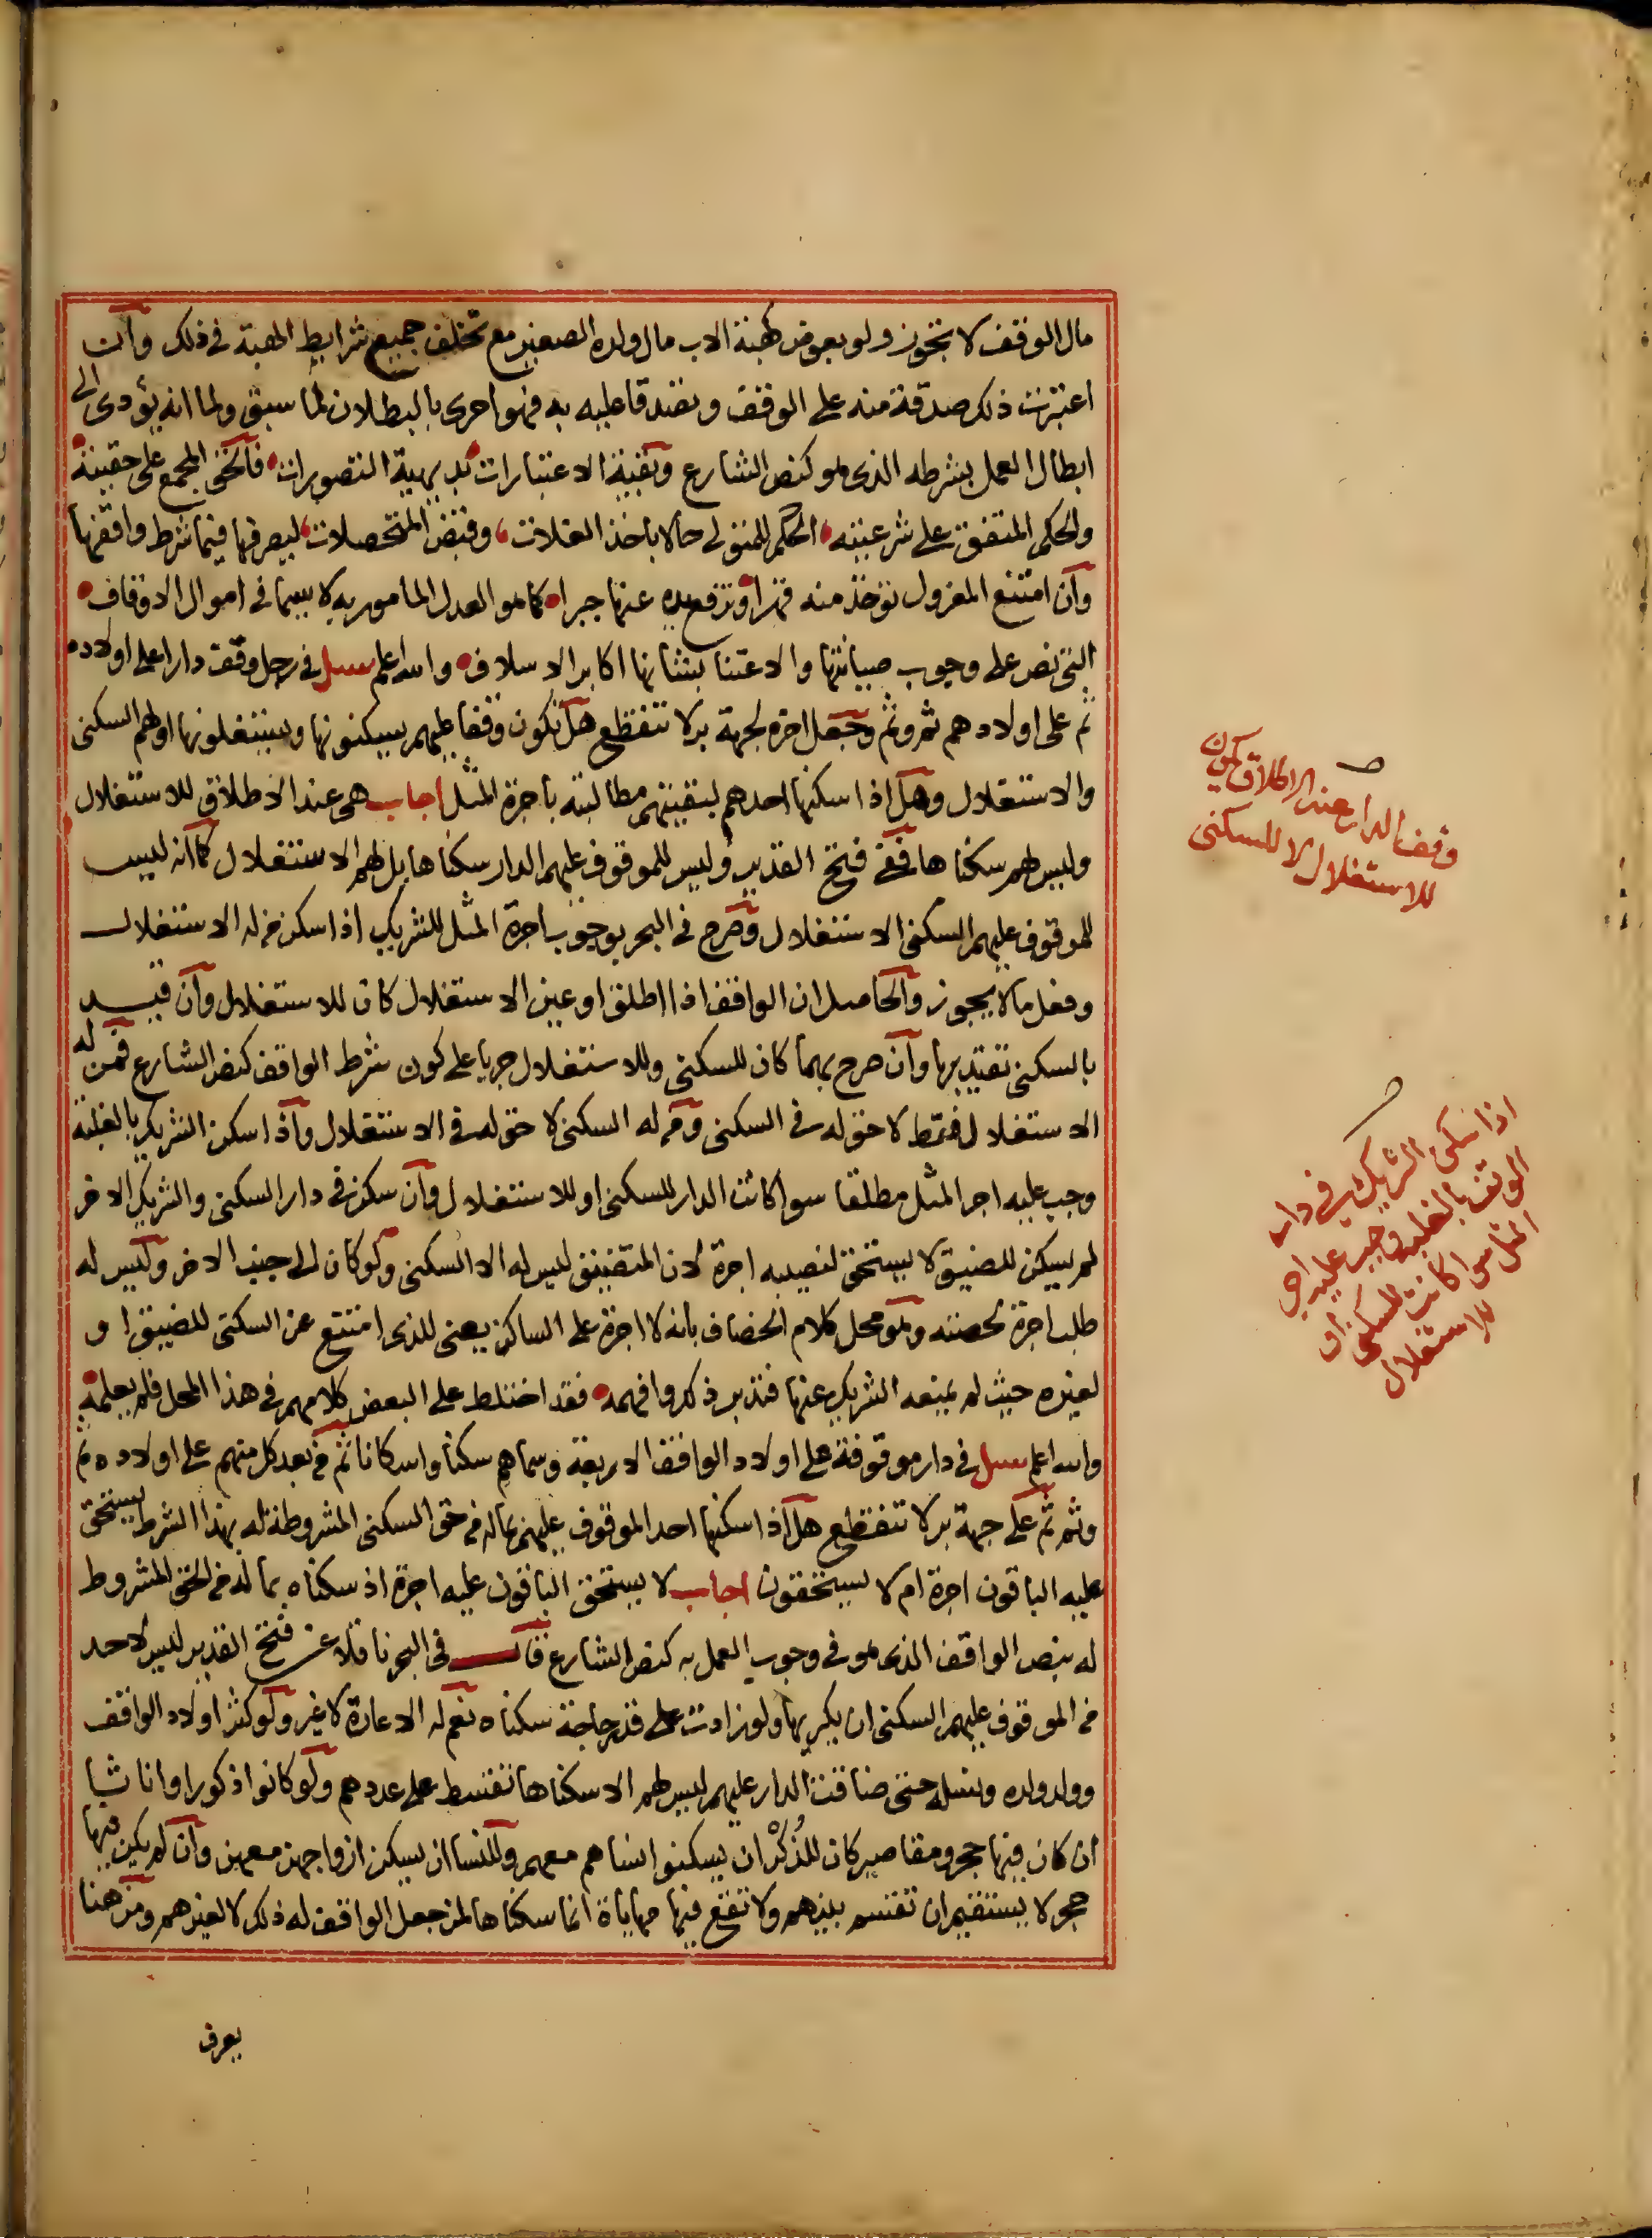 مال الوقف لا تجوز ولو بعوض كهبة الاب مال ولده الصغير مع تخلف جميع شرايط الهبة في ذلك وان
اعتبرت ذلك صدقة منه على الوقف وتصدقا عليه به فهو احرى بالبطلان لما سبق ولما انه يؤدى الى
ابطال العمل بشرطه الذى هو كنص الشارع وبقية الاعتبارات بديهية التصورات فالحق المجمع على حقيته
والحكم المتفق على شرعيته الحكم للمتولى حالا باخذ الغلات وقبض المتحصلات ليصرفها فيما شرط واقفها
وان امتنع المعزول تؤخذ منه قهرا وترفع يده عنها جبرا كما هو العدل المامور به لا سيما في اموال الاوقاف
التى نص على وجوب صيانتها والاعتنا بشانها اكابر الاسلاف والله اعلم سئل في رجل وقف دارا على اولاده
ثم على اولادهم ثم وثم وجعل اخره لجهة بر لا تنقطع هل تكون وقفا عليهم يسكنونها ويستغلونها او لهم السكنى
والاستغلال وهل اذا سكنها احدهم لبقيتهم مطالبته باجرة المثل اجاب هى عند الاطلاق للاستغلال
وليس لهم سكناها ففى فتح القدير وليس للموقوف عليهم الدار سكناها بل لهم الاستغلال كما انه ليس
للموقوف عليهم السكنى الاستغلال وصرح في البحر بوجوب اجرة المثل للشريك اذا سكن من له الاستغلال
وفعل ما لا يجوز والحاصل ان الواقف اذا اطلق او عين الاستغلال كان للاستغلال وان قيد
بالسكنى تقيد بها وان صرح بهما كان للسكنى وللاستغلال جريا على كون شرط الواقف كنص الشارع فمن له
الاستغلال فقط لا حق له في السكنى ومن له السكنى لا حق له في الاستغلال واذا سكن الشريك بالغلبة
وجب عليه اجر المثل مطلقا سوا كانت الدار للسكنى او للاستغلال وان سكن في دار السكنى والشريك الاخر
لم يسكن للضيق لا يستحق لنصيبه اجرة لان المتضيق ليس له الا السكنى ولو كان الى جنب الاخر وليس له
طلب اجرة لحصته وهو محل كلام الخصاف بانه لا اجرة على الساكن يعنى للذى امتنع عن السكنى للضيق او
لغيره حيث لم يمنعه الشريك عنها فتدبر ذلك وافهمه فقد اختلط على البعض كلامهم في هذا المحل فلم يعلمه
والله اعلم سئل في دار موقوفة على اولاد الواقف الاربعة وسماهم سكنا واسكانا ثم من بعد كل منهم على اولاده ثم
وثم ثم على جهة بر لا تنقطع هل اذا سكنها احد الموقوف عليهم بما له من حق السكنى المشروطة له بهذا الشرط يستحق
عليه الباقون اجرة ام لا يستحقون اجاب لا يستحق الباقون عليه اجرة اذ سكناه بما له من الحق المشروط
له بنص الواقف الذى هو في وجوب العمل به كنص الشارع قال في البحر ناقلا عن فتح القدير ليس لاحد
من الموقوف عليهم السكنى ان يكريها ولو زادت على قدر حاجة سكناه نعم له الاعارة لا غير ولو كثر اولاد الواقف
وولد ولده ونسله حتى ضاقت الدار عليهم ليس لهم الا سكناها تقسط على عددهم ولو كانوا ذكورا واناثا
ان كان فيها حجر ومقاصير كان للذكران يسكنوا نساهم معهم وللنسا ان يسكن ازواجهن معهن وان لم يكن فيها
حجر لا يستقيم ان تقسم بينهم ولا تقع فيها مهاياة انما سكناها لمن جعل الواقف له ذلك لا لغيرهم ومن هنا
يعرف
وقف الدار عند الاطلاق يكون
للاستغلال لا للسكنى
اذا سكن الشريك في دار
الوقف بالغلبة وجب عليه اجر
المثل سوا كانت للسكنى او
للاستغلال